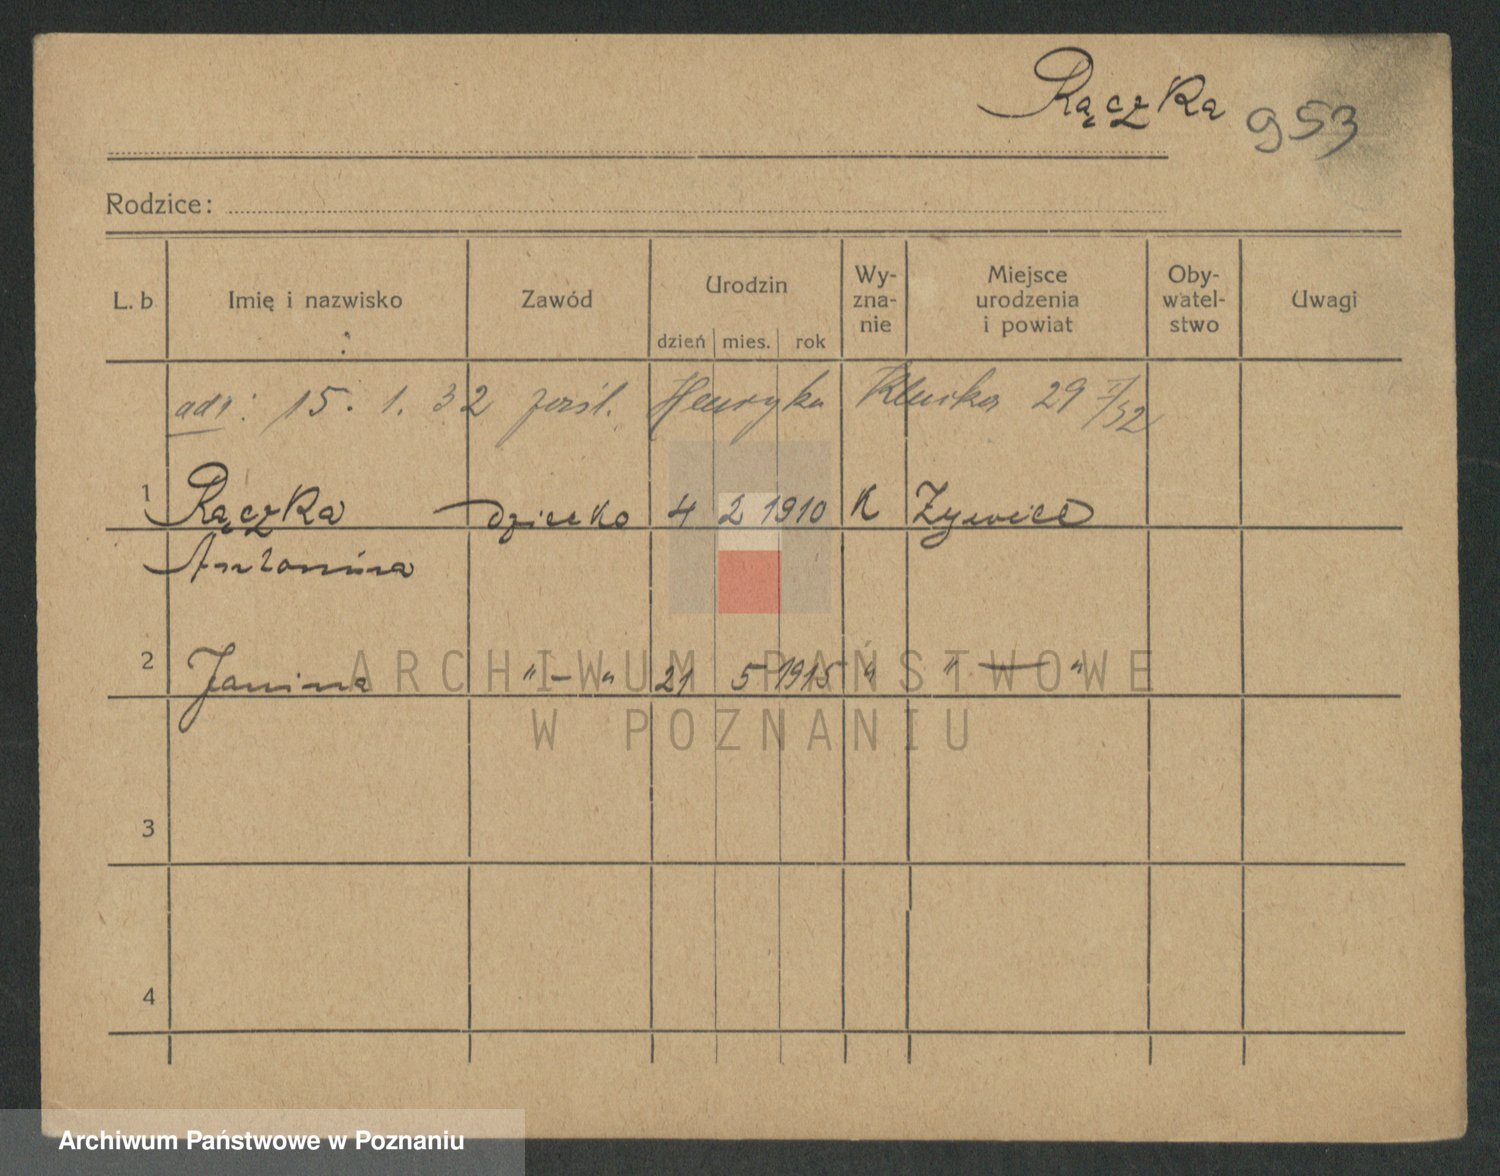 Rączka 953
Rodzice:
L. b Imię i nazwisko Zawód Urodzin dzień mies. rok Wy-zna-nie Miejsce urodzenia i powiat Oby-watel-stwo Uwagi
adr: 15. 1. 32 Henryka 29 I/32
1 Rączka dziecko 4 2 1910 K Żywiec
Antonina
2 Janina "—" 21 5 1915 " " — "
ARCHIWUM PAŃSTWOWE
W POZNANIU
3
4
Archiwum Państwowe w Poznaniu